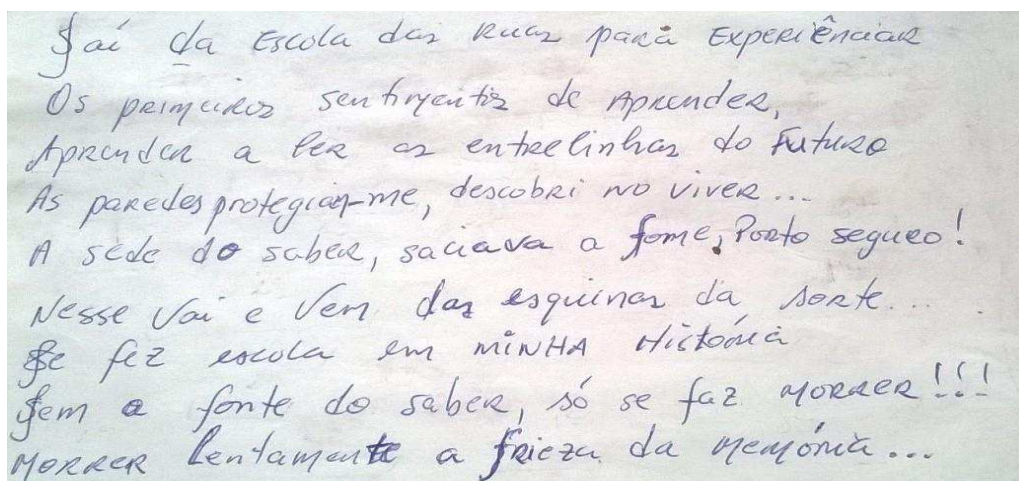 Saí da Escola das Ruas para Experiênciar
Os primeiros sentimentos de Aprender,
Aprender a ler as entrelinhas do Futuro
As paredes protegiam-me, descobri no viver...
A sede do saber, saciava a fome, Porto seguro!
Nesse Vai e Vem das esquinas da sorte...
Se fez escola em MINHA História
Sem a fonte do saber, só se faz MORRER!!!
MORRER lentamente a frieza da Memória...